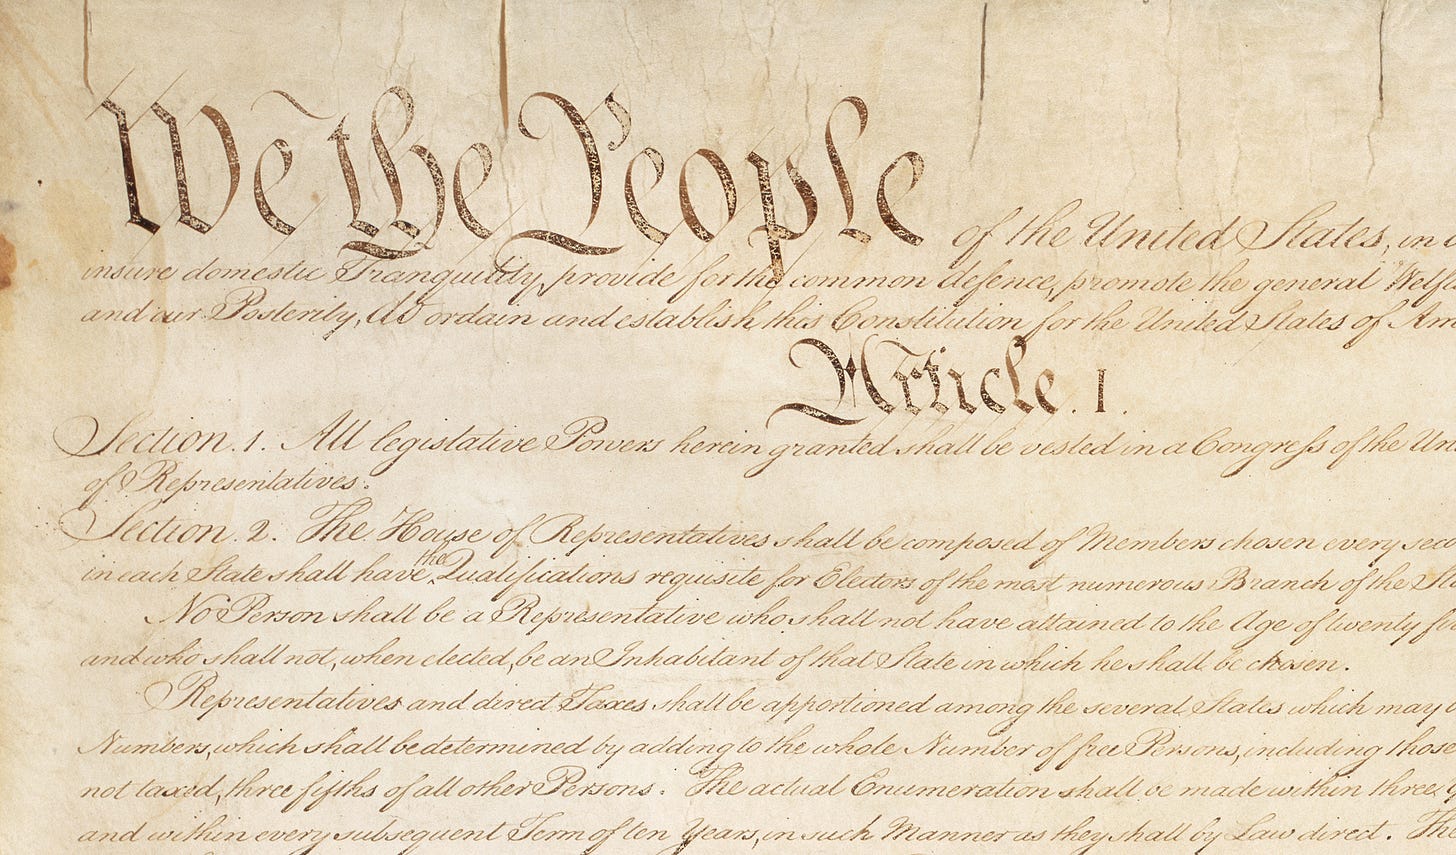 We the People of the United States, in
insure domestic Tranquility, provide for the common defence, promote the general Welf
and our Posterity, do ordain and establish this Constitution for the United States of Am
Article. I.
Section. 1. All legislative Powers herein granted shall be vested in a Congress of the Un
of Representatives.
Section. 2. The House of Representatives shall be composed of Members chosen every seco
in each State shall have the Qualifications requisite for Electors of the most numerous Branch of the St
No Person shall be a Representative who shall not have attained to the Age of twenty fi
and who shall not, when elected, be an Inhabitant of that State in which he shall be chosen.
Representatives and direct Taxes shall be apportioned among the several States which may
Numbers, which shall be determined by adding to the whole Number of free Persons, including those
not taxed, three fifths of all other Persons. The actual Enumeration shall be made within three
and within every subsequent Term of ten Years, in such Manner as they shall by Law direct. The